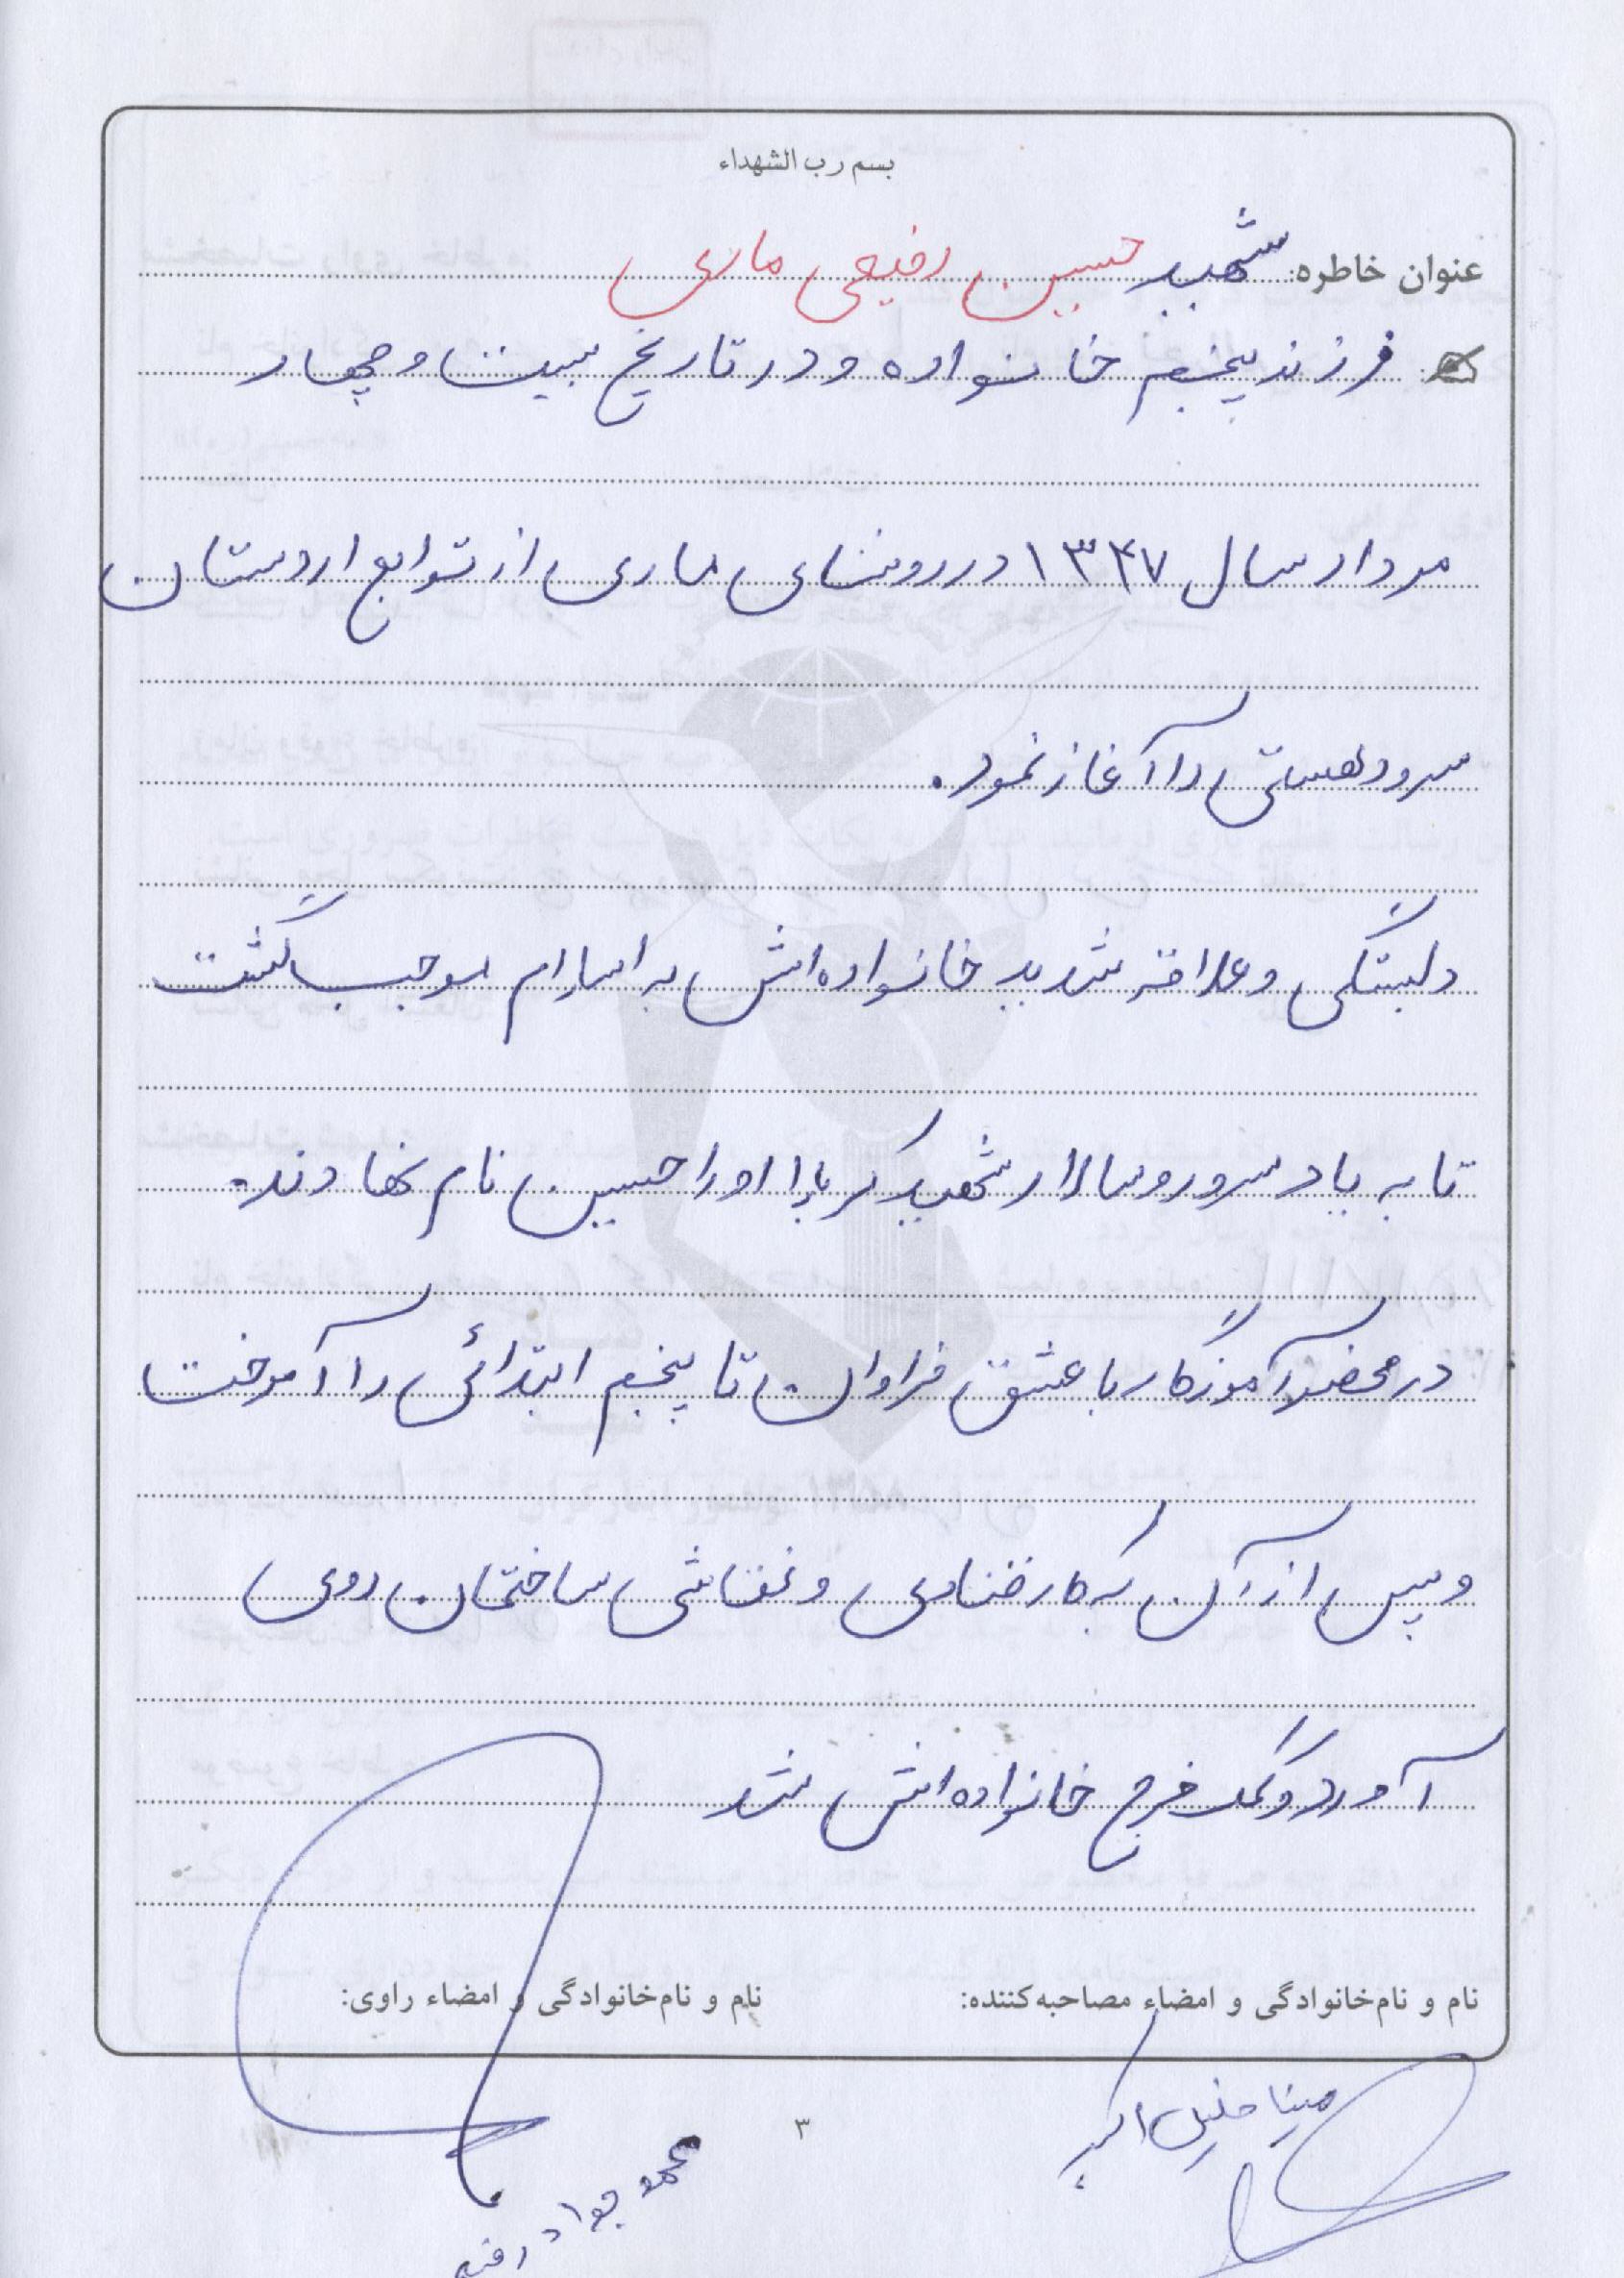 بسم رب الشهداء
عنوان خاطره: شهید حسین رفیعی ماری
فرزند پنجم خانواده و در تاریخ بیست و چهار
مرداد سال ۱۳۴۷ در روستای ماری از توابع اردستان
سرود هستی را آغاز نمود.
دلبستگی و علاقه شدید خانواده اش به امام موجب گشت
تا به یاد سرور و سالار شهید کربلا او را حسین نام نهادند.
در محضر آموزگار با عشق فراوان تا پنجم ابتدائی را آموخت
و پس از آن به کار قنادی و نقاشی ساختمان روی
آورد و کمک خرج خانواده اش شد
نام و نام‌خانوادگی و امضاء مصاحبه‌کننده:
نام و نام‌خانوادگی و امضاء راوی:
مینا خلیل اکبر
محمد جواد
۳